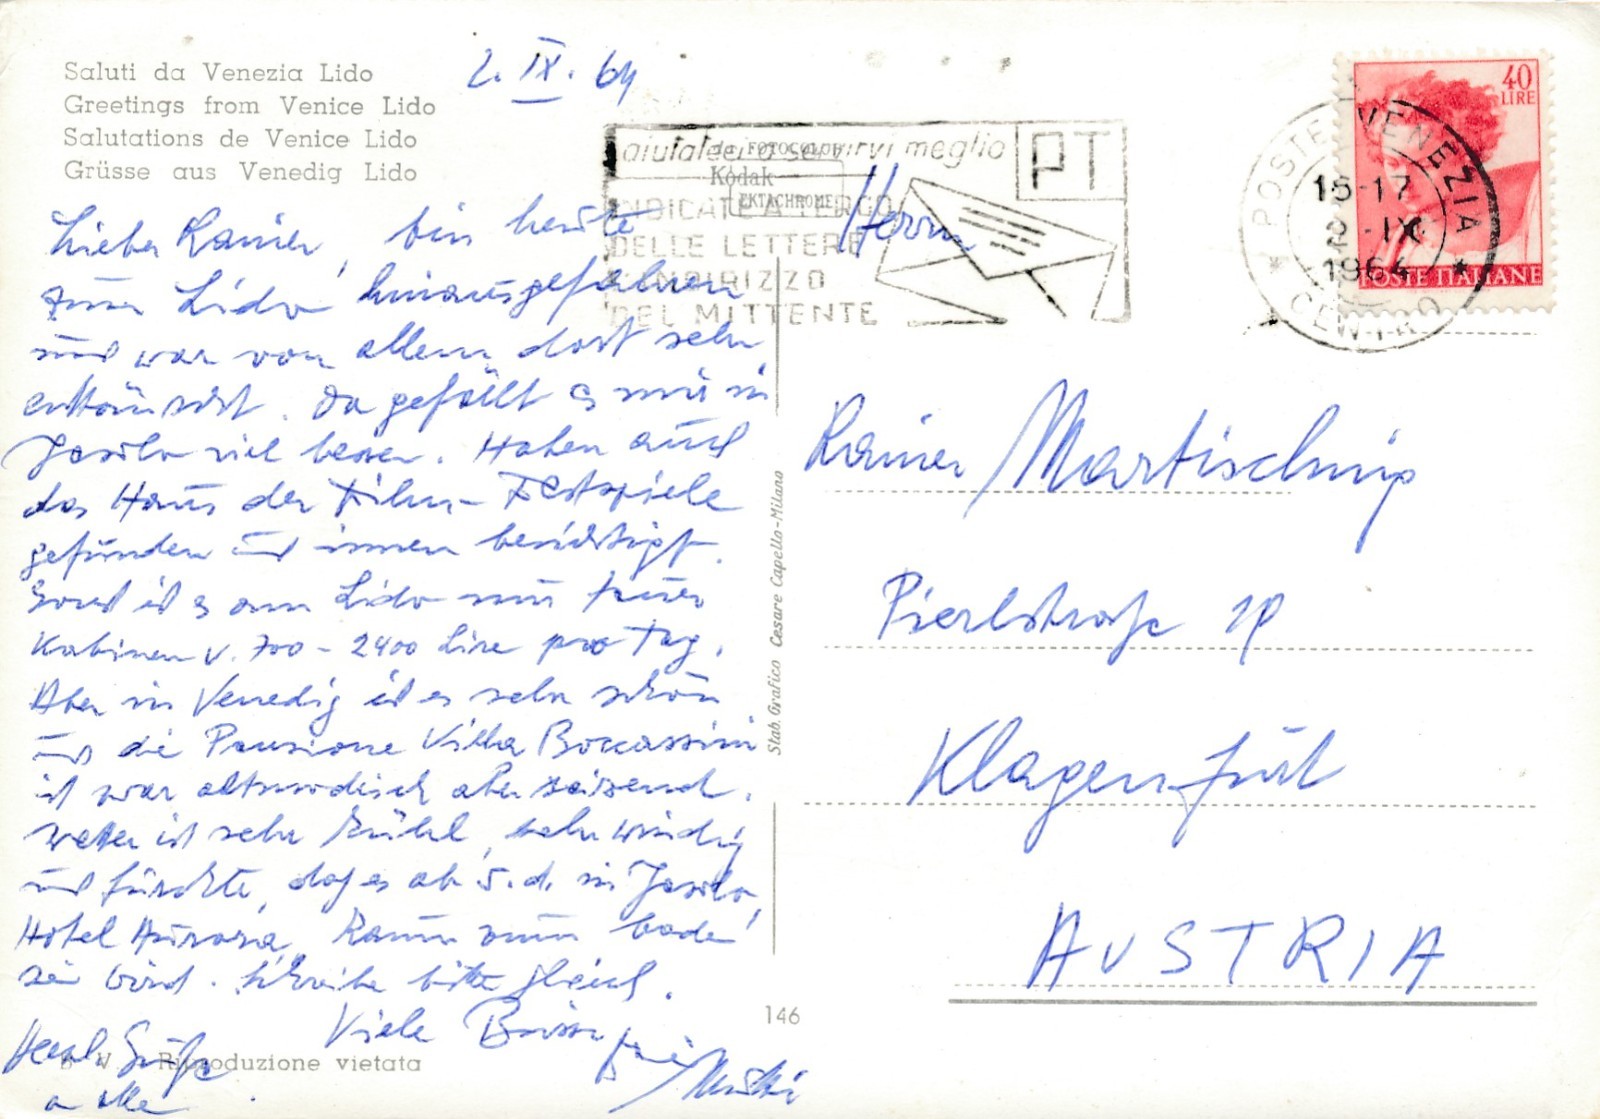 Saluti da Venezia Lido
Greetings from Venice Lido
Salutations de Venice Lido
Grüsse aus Venedig Lido
2. IX. 64
Lieber Rainer, bin heute
zum Lido hinausgefahren
und war von allem dort sehr
enttäuscht. Da gefällt es mir in
Jesolo viel besser. Haben auch
das Haus der Film-Festspiele
gefunden und innen besichtigt.
Sonst ist es am Lido nur teuer
Kabinen v. 700 - 2400 Lire pro Tag.
Aber in Venedig ist es sehr schön
und die Pensione Villa Boccassini
ist zwar altmodisch aber reizend.
Wetter ist sehr kühl, sehr windig
und fürchte, daß es ab 5. d. in Jesolo,
Hotel Aurora, kaum zum baden
sein wird. Schreibe bitte gleich.
Viele Bussi
Herzl. Grüße
an alle
Mutti
S. V. Riproduzione vietata
146
Stab. Grafico Cesare Capello-Milano
da FOTOCOLOR
Kodak
EKTACHROME
aiutateci a servirvi meglio
PT
INDICATE A TERGO
DELLE LETTERE
L'INDIRIZZO
DEL MITTENTE
POSTE VENEZIA
CENTRO
16-17
2-IX
1964
40
LIRE
POSTE ITALIANE
Herrn
Rainer Martischnig
Pierlstraße
Klagenfurt
AUSTRIA